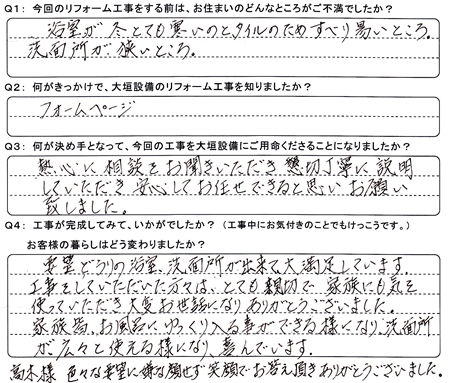 Q1: 今回のリフォーム工事をする前は、お住まいのどんなところがご不満でしたか？
浴室が冬とても寒いのとタイルのためすべり易いところ。
洗面所が狭いところ。
Q2: 何がきっかけで、大垣設備のリフォーム工事を知りましたか？
フォームページ
Q3: 何が決め手となって、今回の工事を大垣設備にご用命くださることになりましたか？
熱心に相談をお聞きいただき懇切丁寧に説明
していただき安心してお任せできると思いお願い
致しました。
Q4: 工事が完成してみて、いかがでしたか？（工事中にお気付きのことでもけっこうです。）
お客様の暮らしはどう変わりましたか？
要望どうりの浴室、洗面所が出来て大満足しています。
工事をしていただいた方々は、とても親切で家族にも気を
使っていただき大変お世話になりありがとうございました。
家族皆、お風呂にゆっくり入る事ができる様になり、洗面所
が広々と使える様になり、喜んでいます。
高木様 色々な要望に嫌な顔せず笑顔でお答え頂きありがとうございました。